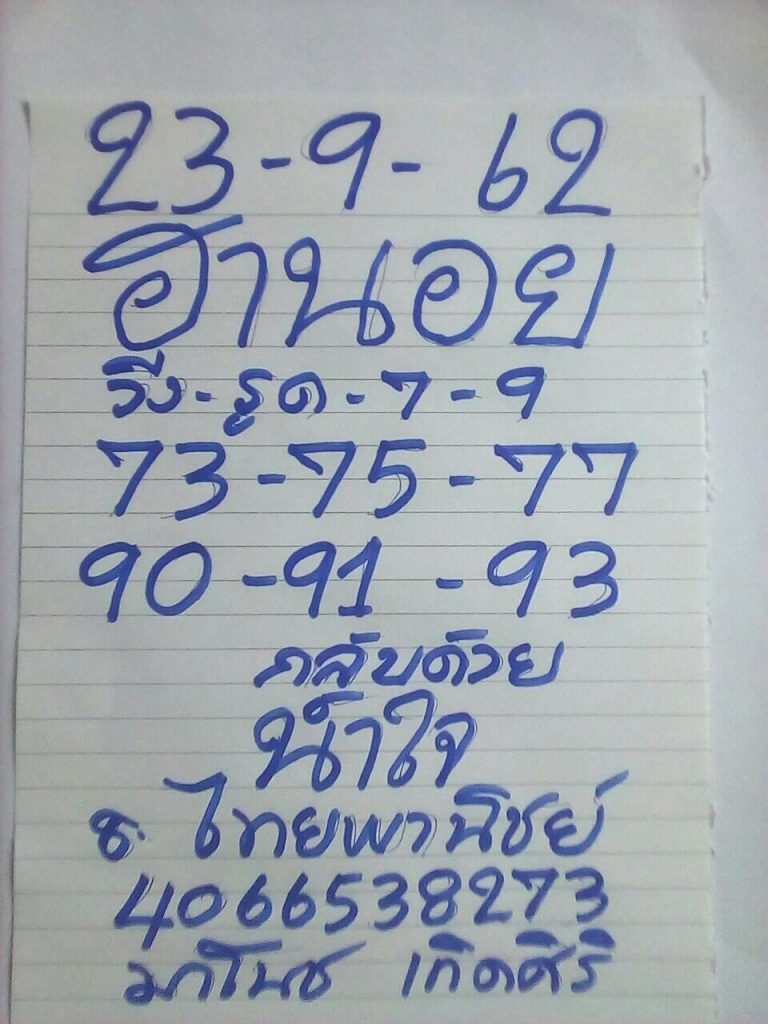 23-9-62
ฮานอย
วิ่ง-รูด-7-9
73-75-77
90-91-93
กลับด้วย
น้ำใจ
ธ. ไทยพานิชย์
4066538273
มาโนช เกิดศิริ